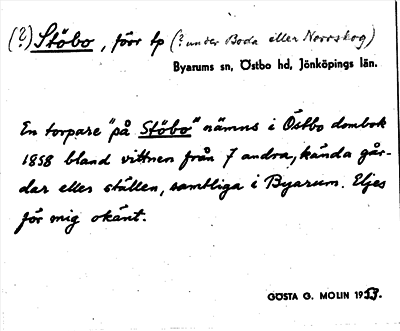 (?) Stöbo, förr tp (? under Boda eller Norrskog)
Byarums sn, Östbo hd, Jönköpings län.
En torpare "på Stöbo" nämns i Östbo dombok
1858 bland vittnen från 7 andra, kända går-
dar eller ställen, samtliga i Byarum. Eljes
för mig okänt.
GÖSTA G. MOLIN 19